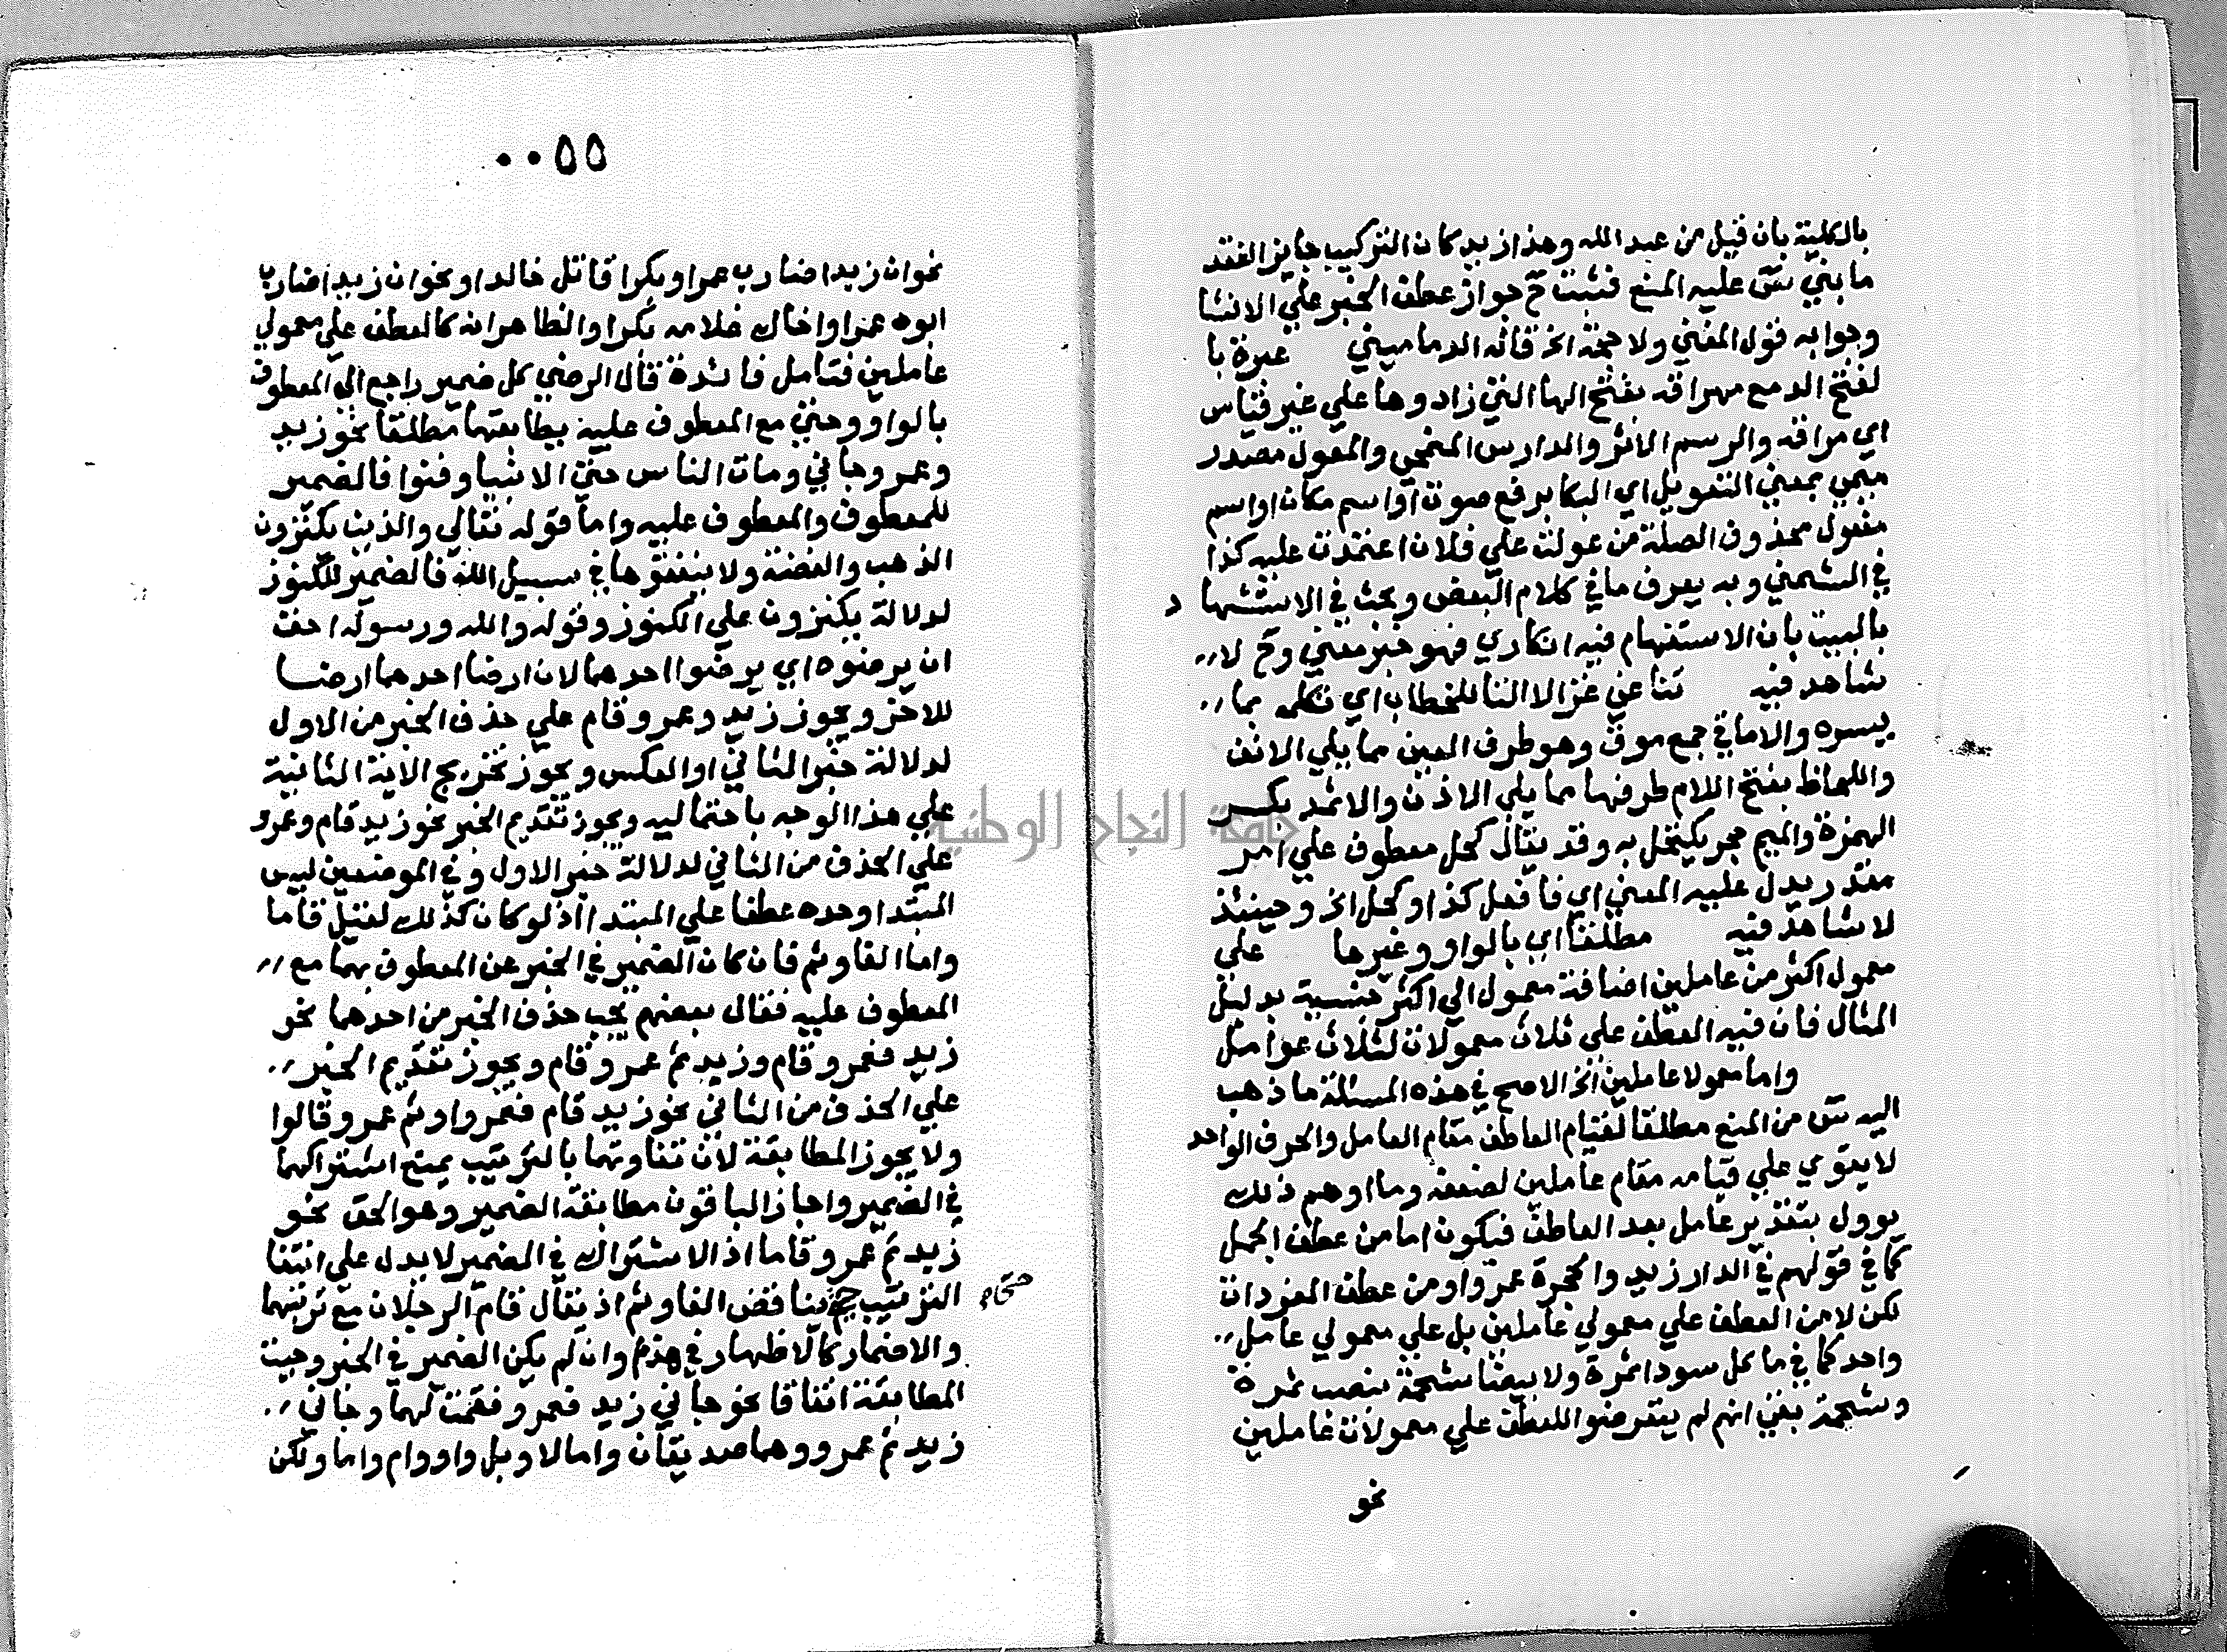 بالكلية بان قيل من عبد الله وهذا زيد كان التركيب جايز الفقد
ما بني س عليه المنع فثبت ح جواز عطف الخبر علي الانشا
وجوابه قول المغني ولا حجة الخ قاله الدماميني عبرة با
لفتح الدمع مهراقه بفتح الها التي زادوها علي غير قياس
اي مراقه والرسم الاثر والدارس المنمحي والمعول مصدر
ميمي بمعني التعويل اي البكا برفع صوت او اسم مكان او اسم
مفعول محذوف الصلة من عولت علي فلان اعتمدت عليه كذا
في الشمني وبه يعرف ما في كلام البعض وبحث في الاستشها د
بالبيت بان الاستفهام فيه انكاري فهو خبر معني وح لا
شاهد فيه تناغي غزالا التا للخطاب اي تكلمه بما
يسره والاماقي جمع موق وهو طرف العين مما يلي الانف
واللحاظ بفتح اللام طرفها مما يلي الاذن والاثمد بكسر
الهمزة والميم حجر يكتحل به وقد يقال كحل معطوف علي امر
مقدر يدل عليه المعني اي فافعل كذا وكحل الخ وحينئذ
لا شاهد فيه مطلقا اي بالواو وغيرها علي
معمول اكثر من عاملين اضافة معمول الي اكثر جنسية بدليل
المثال فان فيه العطف علي ثلاث معمولات لثلاث عوامل
واما معمولا عاملين الخ الاصح في هذه المسئلة ما ذهب
اليه س من المنع مطلقا لقيام العاطف مقام العامل والحرف الواحد
لا يقوي علي قيامه مقام عاملين لضعفه وما اوهم ذلك
يوول بتقدير عامل بعد العاطف فيكون اما من عطف الجمل
كما في قولهم في الدار زيد والحجرة عمرو او من عطف المفردات
لكن لا من العطف علي معمولي عاملين بل علي معمولي عامل
واحد كما في ما كل سودا تمرة ولا بيضا شحمة بنصب تمرة
وشحمة بقي انهم لم يتعرضوا للعطف علي معمولات عاملين
نحو
٠٠٥٥
نحو ان زيدا ضارب عمرا وبكرا قاتل خالدا ونحو ان زيدا ضارب
ابوه عمرا واخاك غلامه بكرا والظاهر انه كالعطف علي معمولي
عاملين فتامل فائدة قال الرضي كل ضمير راجع الي المعطوف
بالواو وحتي مع المعطوف عليه يطابقهما مطلقا نحو زيد
وعمرو جاني ومات الناس حتي الانبيا وفنوا فالضمير
للمعطوف والمعطوف عليه واما قوله تعالي والذين يكنزون
الذهب والفضة ولا ينفقوها في سبيل الله فالضمير للكنوز
لدلالة يكنزون علي الكنوز وقوله والله ورسوله احق
ان يرضوه اي يرضوا احدهما لان ارضا احدهما ارضا
للاخر ويجوز زيد وعمرو قام علي حذف الخبر من الاول
لدلالة خبر الثاني او العكس ويجوز تخريج الاية الثانية
علي هذا الوجه باحتماليه ويجوز تقديم الخبر نحو زيد قام وعمرو
علي الحذف من الثاني لدلالة خبر الاول وفي الموضعين ليس
المبتدا وحده عطفا علي المبتدا اذ لو كان كذلك لقيل قاما
واما الفا وثم فان كان الضمير في الخبر عن المعطوف بهما مع
المعطوف عليه فقال بعضهم يجب حذف الخبر من احدهما نحو
زيد فعمرو قام وزيد ثم عمرو قام ويجوز تقديم الخبر
علي الحذف من الثاني نحو زيد قام فعمرو او ثم عمرو قالوا
ولا يجوز المطابقة لان تفاوتهما بالترتيب يمنع اشتراكهما
في الضمير واجاز الباقون مطابقة الضمير وهو الحق نحو
زيد ثم عمرو قاما اذ الاشتراك في الضمير لا يدل علي انتفا
الترتيب حتي يناقض الفا وثم اذ يقال قام الرجلان مع ترتبهما
والاضمار كالاظهار في هذا وان لم يكن الضمير في الخبر وجبت
المطابقة اتفاقا نحو جاني زيد فعمرو فقمت لهما وجاني
زيد ثم عمرو وهما صديقان واما لا وبل واو وام واما ولكن
جامعة النجاح الوطنية